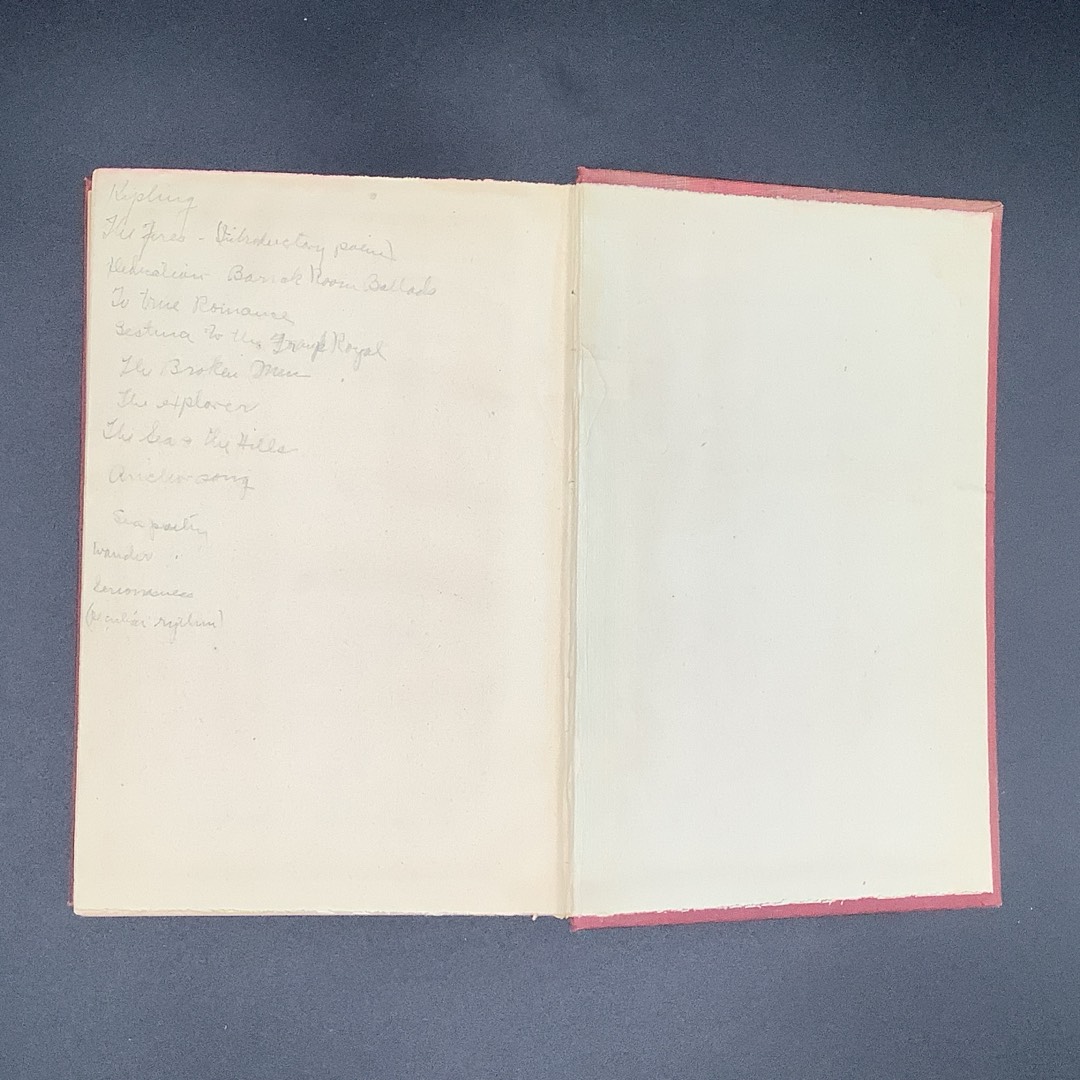 Kypling
The Fires - (introductory poem)
Barrak Room Ballads
To true Romance
Sestina to the Tramp Royal
The Broken Men
The explorer
The Sea & the Hills
Anchor song
Sea poetry
wander
(peculiar rythm)